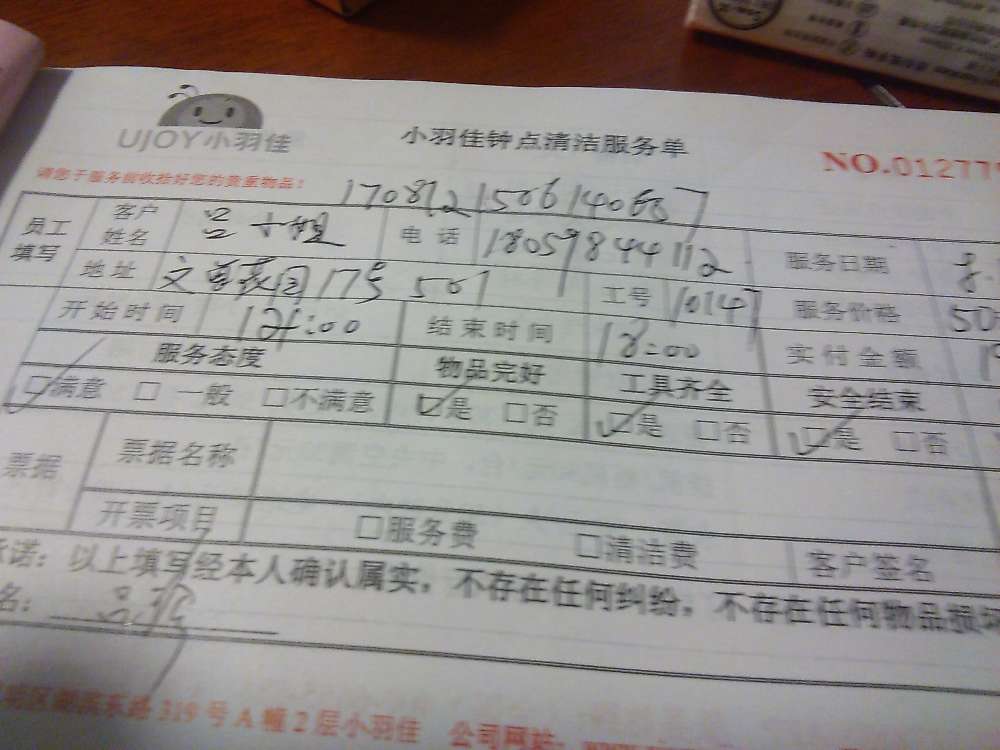 UJOY小羽佳 小羽佳钟点清洁服务单 NO.012779
请您于服务前收拾好您的贵重物品！
员工填写 客户姓名 吕小姐 电话 18059844112 服务日期 8.
地址 501 工号 10147 服务价格 50
开始时间 :00 结束时间 18:00 实付金额
服务态度 物品完好 工具齐全 安全结束
□满意 □一般 □不满意 □是 □否 □是 □否 □是 □否
票据 票据名称
开票项目 □服务费 □清洁费 客户签名
诺：以上填写经本人确认属实，不存在任何纠纷，不存在任何物品损坏
名：
东路319号A幢2层小羽佳 公司网站：